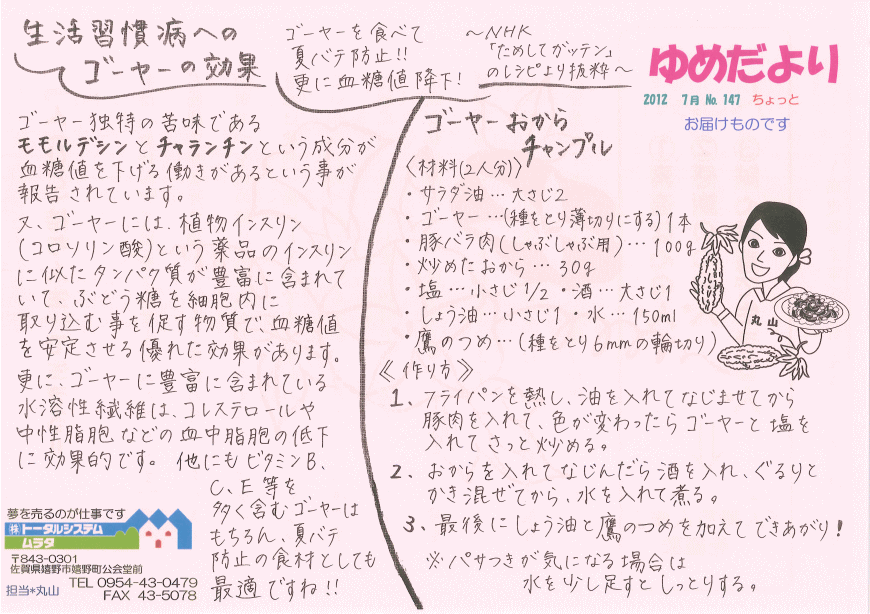 生活習慣病への
ゴーヤーの効果
ゴーヤーを食べて
夏バテ防止!!
更に血糖値降下!
〜NHK
「ためしてガッテン」
のレシピより抜粋〜
ゆめだより
2012 7月 No. 147 ちょっと
お届けものです
ゴーヤー独特の苦味である
モモルデシンとチャランチンという成分が
血糖値を下げる働きがあるという事が
報告されています。
又、ゴーヤーには、植物インスリン
(コロソリン酸)という薬品のインスリン
に似たタンパク質が豊富に含まれて
いて、ぶどう糖を細胞内に
取り込む事を促す物質で、血糖値
を安定させる優れた効果があります。
更に、ゴーヤーに豊富に含まれている
水溶性繊維は、コレステロールや
中性脂肪などの血中脂肪の低下
に効果的です。他にもビタミンB、
C、E等を
多く含むゴーヤーは
もちろん、夏バテ
防止の食材としても
最適ですね!!
夢を売るのが仕事です
㈱トータルシステム
ムラタ
〒843-0301
佐賀県嬉野市嬉野町公会堂前
TEL 0954-43-0479
担当*丸山 FAX 43-5078
ゴーヤーおから
チャンプル
〈材料(2人分)〉
・サラダ油…大さじ2
・ゴーヤー…(種をとり薄切りにする)1本
・豚バラ肉(しゃぶしゃぶ用)…100g
・炒めたおから…30g
・塩…小さじ1/2 ・酒…大さじ1
・しょう油…小さじ1 ・水…150ml
・鷹のつめ…(種をとり6mmの輪切り)
《作り方》
1、フライパンを熱し、油を入れてなじませてから
豚肉を入れて、色が変わったらゴーヤーと塩を
入れてさっと炒める。
2、おからを入れてなじんだら酒を入れ、ぐるりと
かき混ぜてから、水を入れて煮る。
3、最後にしょう油と鷹のつめを加えてできあがり!
※パサつきが気になる場合は
水を少し足すとしっとりする。
丸山